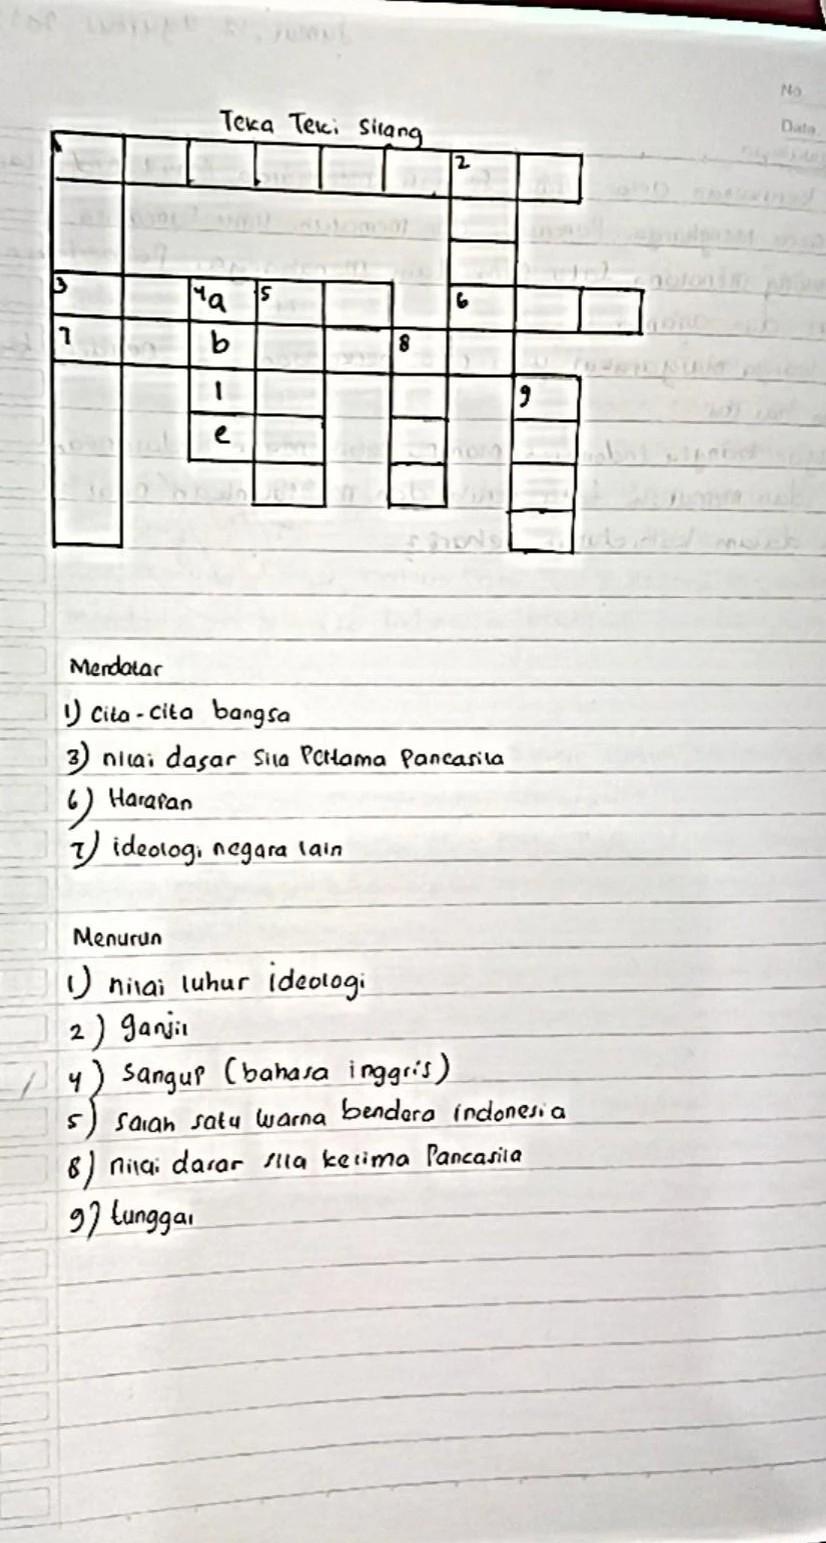 No
Date
Teka Teki Silang
1 2
3 4 a 5 6
7 b 8
l 9
e
Mendatar
1) Cita-cita bangsa
3) nilai dasar Sila Pertama Pancasila
6) Harapan
7) ideologi negara lain
Menurun
1) nilai luhur ideologi
2) ganjil
4) Sangup (bahasa inggris)
5) salah satu warna bendera indonesia
8) nilai dasar sila kelima Pancasila
9) tunggal